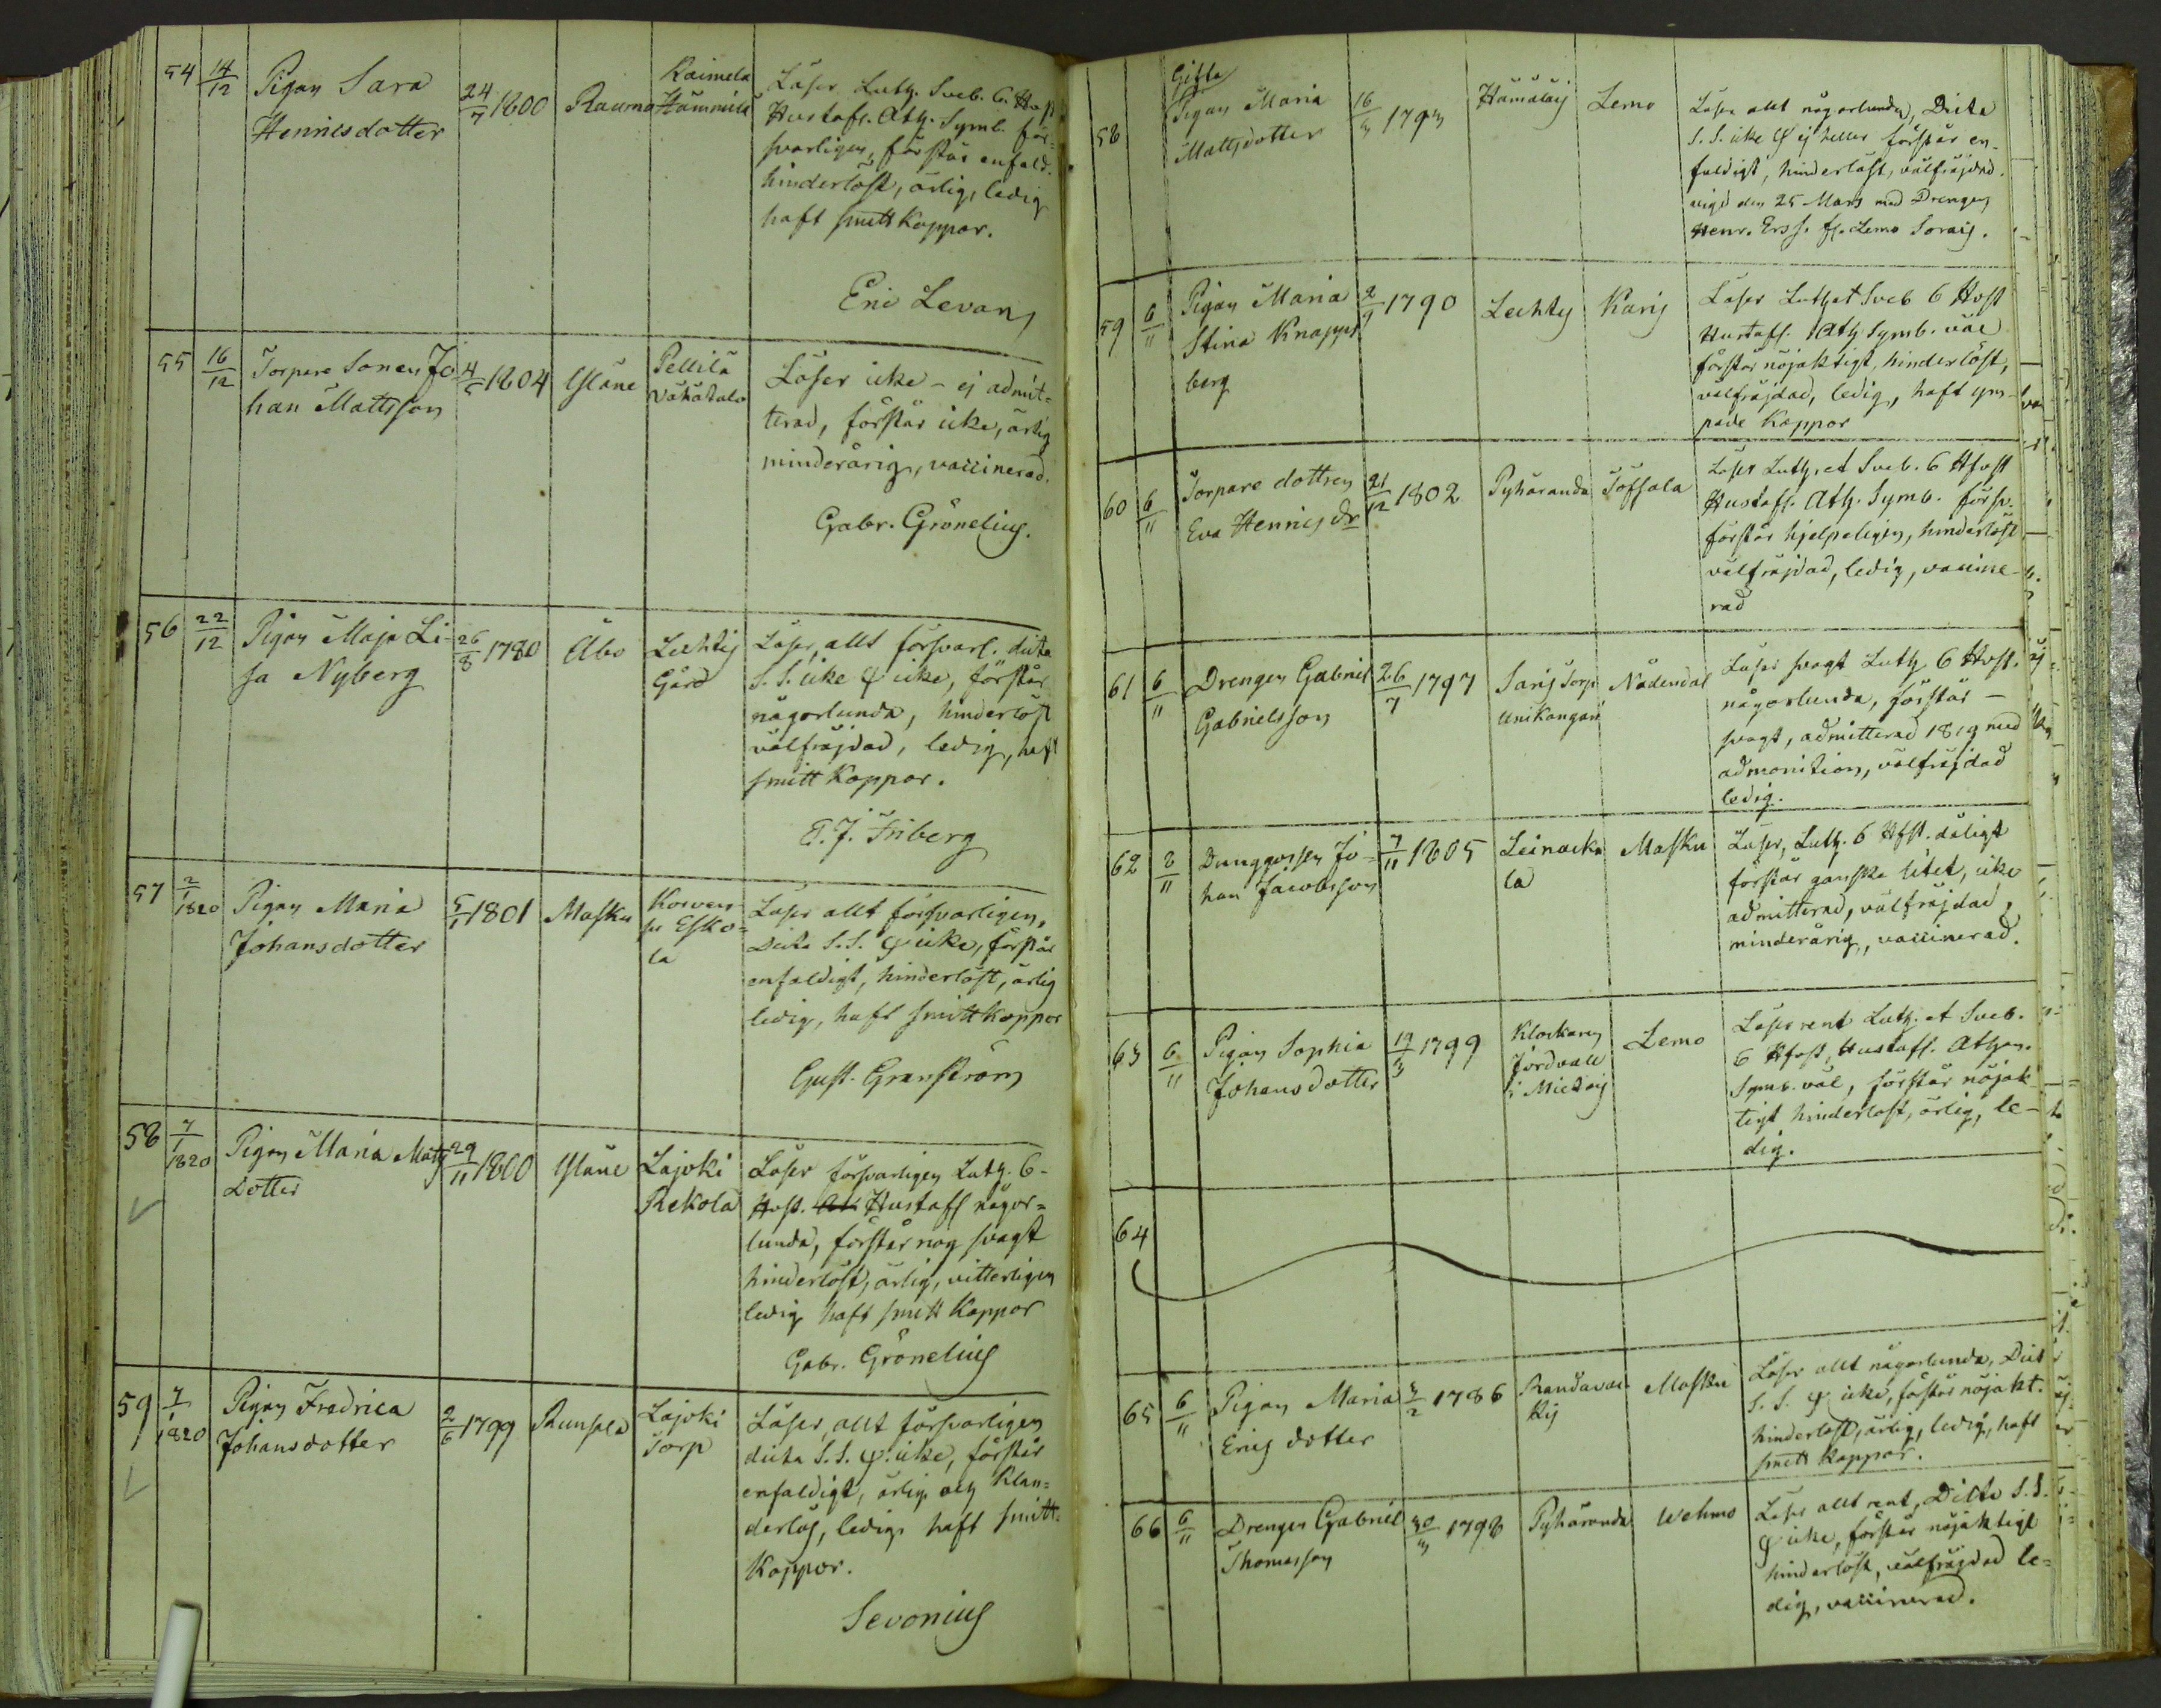 54 14/12 Pigan Sara
Henricsdotter
24/7 1800 Rauma
Kaimela
Hammila
Läser Luth. Sveb. 6. Hvst
Hustafl. Ath. Symb. för=
svarligen, förstår enfald.
hinderlöst, ärlig, ledig
haft smittkoppor.
Eric Levan
55 16/12 Torpare Sonen Jo
han Mattsson
4/5 1804 Yläne
Pellilä
Vähätalo
Läser icke - ej admit=
terad, förstår icke, ärlig
minderårig, vaccinerad.
Gabr. Grönelius.
56 22/12 Pigan Maja Li
sa Nyberg
26/8 1780 Åbo
Lechtis
Gård
Läser allt försvarl. dicta
S. S. icke φ icke, förstår
någorlunda, hinderlöst
välfräjdad, ledig, haft
smitt koppor.
E. J. Friberg
57 2/1 1820 Pigan Maria
Johansdotter
5/1 1801 Masku
Esko=
la
Läser allt försvarligen,
Dicta S. S. φ icke, förstår
enfaldigt, hinderlöst, ärlig
ledig, haft smittkoppor
Gust. Granström
58 7/1 1820 Pigan Maria Matts
dotter
29/11 1800 Yläne
Lajoki
Rekola
Läser försvarligen Luth. 6-
Hvst. Hustafl någor=
lunda, förstår nog svagt
hinderlöst, ärlig, vitterligen
ledig haft smitt koppor
Gabr. Grönelius
59 7/1 1820 Pigan Fredrica
Johansdotter
2/6 1799 Runsala
Lajoki
Torp
Läser allt försvarligen
dicta S. S. φ. icke, förstår
enfaldigt, ärlig och klan=
derlös, ledig haft smitt=
koppor.
Sevonius
Gifta
58 Pigan Maria
Mattsdotter
16/3 1793 Lemo
Läser allt någorlunda, Dicta
S. S. icke φ ej heller förstår en-
faldigt, hinderlöst, välfräjdad.
vigd den 25 Mars med Drengen
Henr. Erss. fr. Lemo Sorais.
59 6/11 Pigan Maria
Stina Knapps
berg
2/9 1790 Lechtis Karis
Läser Luth et Sveb 6 Hvst
Hustafl. Ath Symb. väl
förstår nöjaktigt, hinderlöst,
välfräjdad, ledig, haft ym-
pade koppor
60 6/11 Torpare dottren
Eva Henrics dr
21/12 1802 Pyhäranda Töfsala
Läser Luth. et Sveb. 6 Hfvst
Hustafl. Ath. Symb. försv.
förstår hjelpeligen, hinderlöst
välfräjdad, ledig, vaccine-
rad
61 6/11 Drengen Gabriel
Gabrielsson
26/7 1797
Saris Torp
Unikangari
Nådendal
Läser svagt Luth 6 Hvst.
någorlunda, förstår -
svagt, admitterad 1819 med
admonition, välfräjdad
ledig.
62 8/11 Dunggossen Jo=
han Jacobsson
7/11 1805
Leinacka
la
Masku
Läser, Luth. 6 Hfst. dåligt
förstår ganska litet, icke
admitterad, välfräjdad,
minderårig, vaccinerad.
63 6/11 Pigan Sophia
Johansdotter
19/3 1799
Klockaren
Jordvall
i Mietois
Lemo
Läser rent Luth. et Sveb.
6 Hfvst, Hustafl. Athan.
Symb. väl, förstår nöjak
tigt hinderlöst, ärlig, le-
dig.
64
65 6/11 Pigan Maria
Erics dotter
3/2 1786
Randavai
Masku
Läser allt någorlunda, Dict
S. S. φ icke, förstår nöjakt.
hinderlöst, ärlig, ledig, haft
smitt koppor.
66 6/11 Drengen Gabriel
Thomasson
30/3 1798 Pyhäranda Wehmo
Läser allt rent, Dicta S. S.
φ icke, förstår nöjaktigt
hinderlöst, välfräjdad le=
dig, vaccinerad.